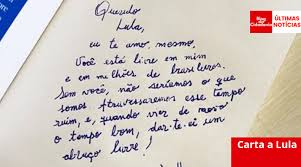 Querido
Lula,
eu te amo, mesmo.
Você está livre em mim
e em milhões de brasileiros.
Sem você, não seríamos o que
somos. Atravessaremos esse tempo
ruim, e, quando vier de novo
o tempo bom, dar-te-ei um
abraço livre!
ÚLTIMAS
NOTÍCIAS
Carta a Lula